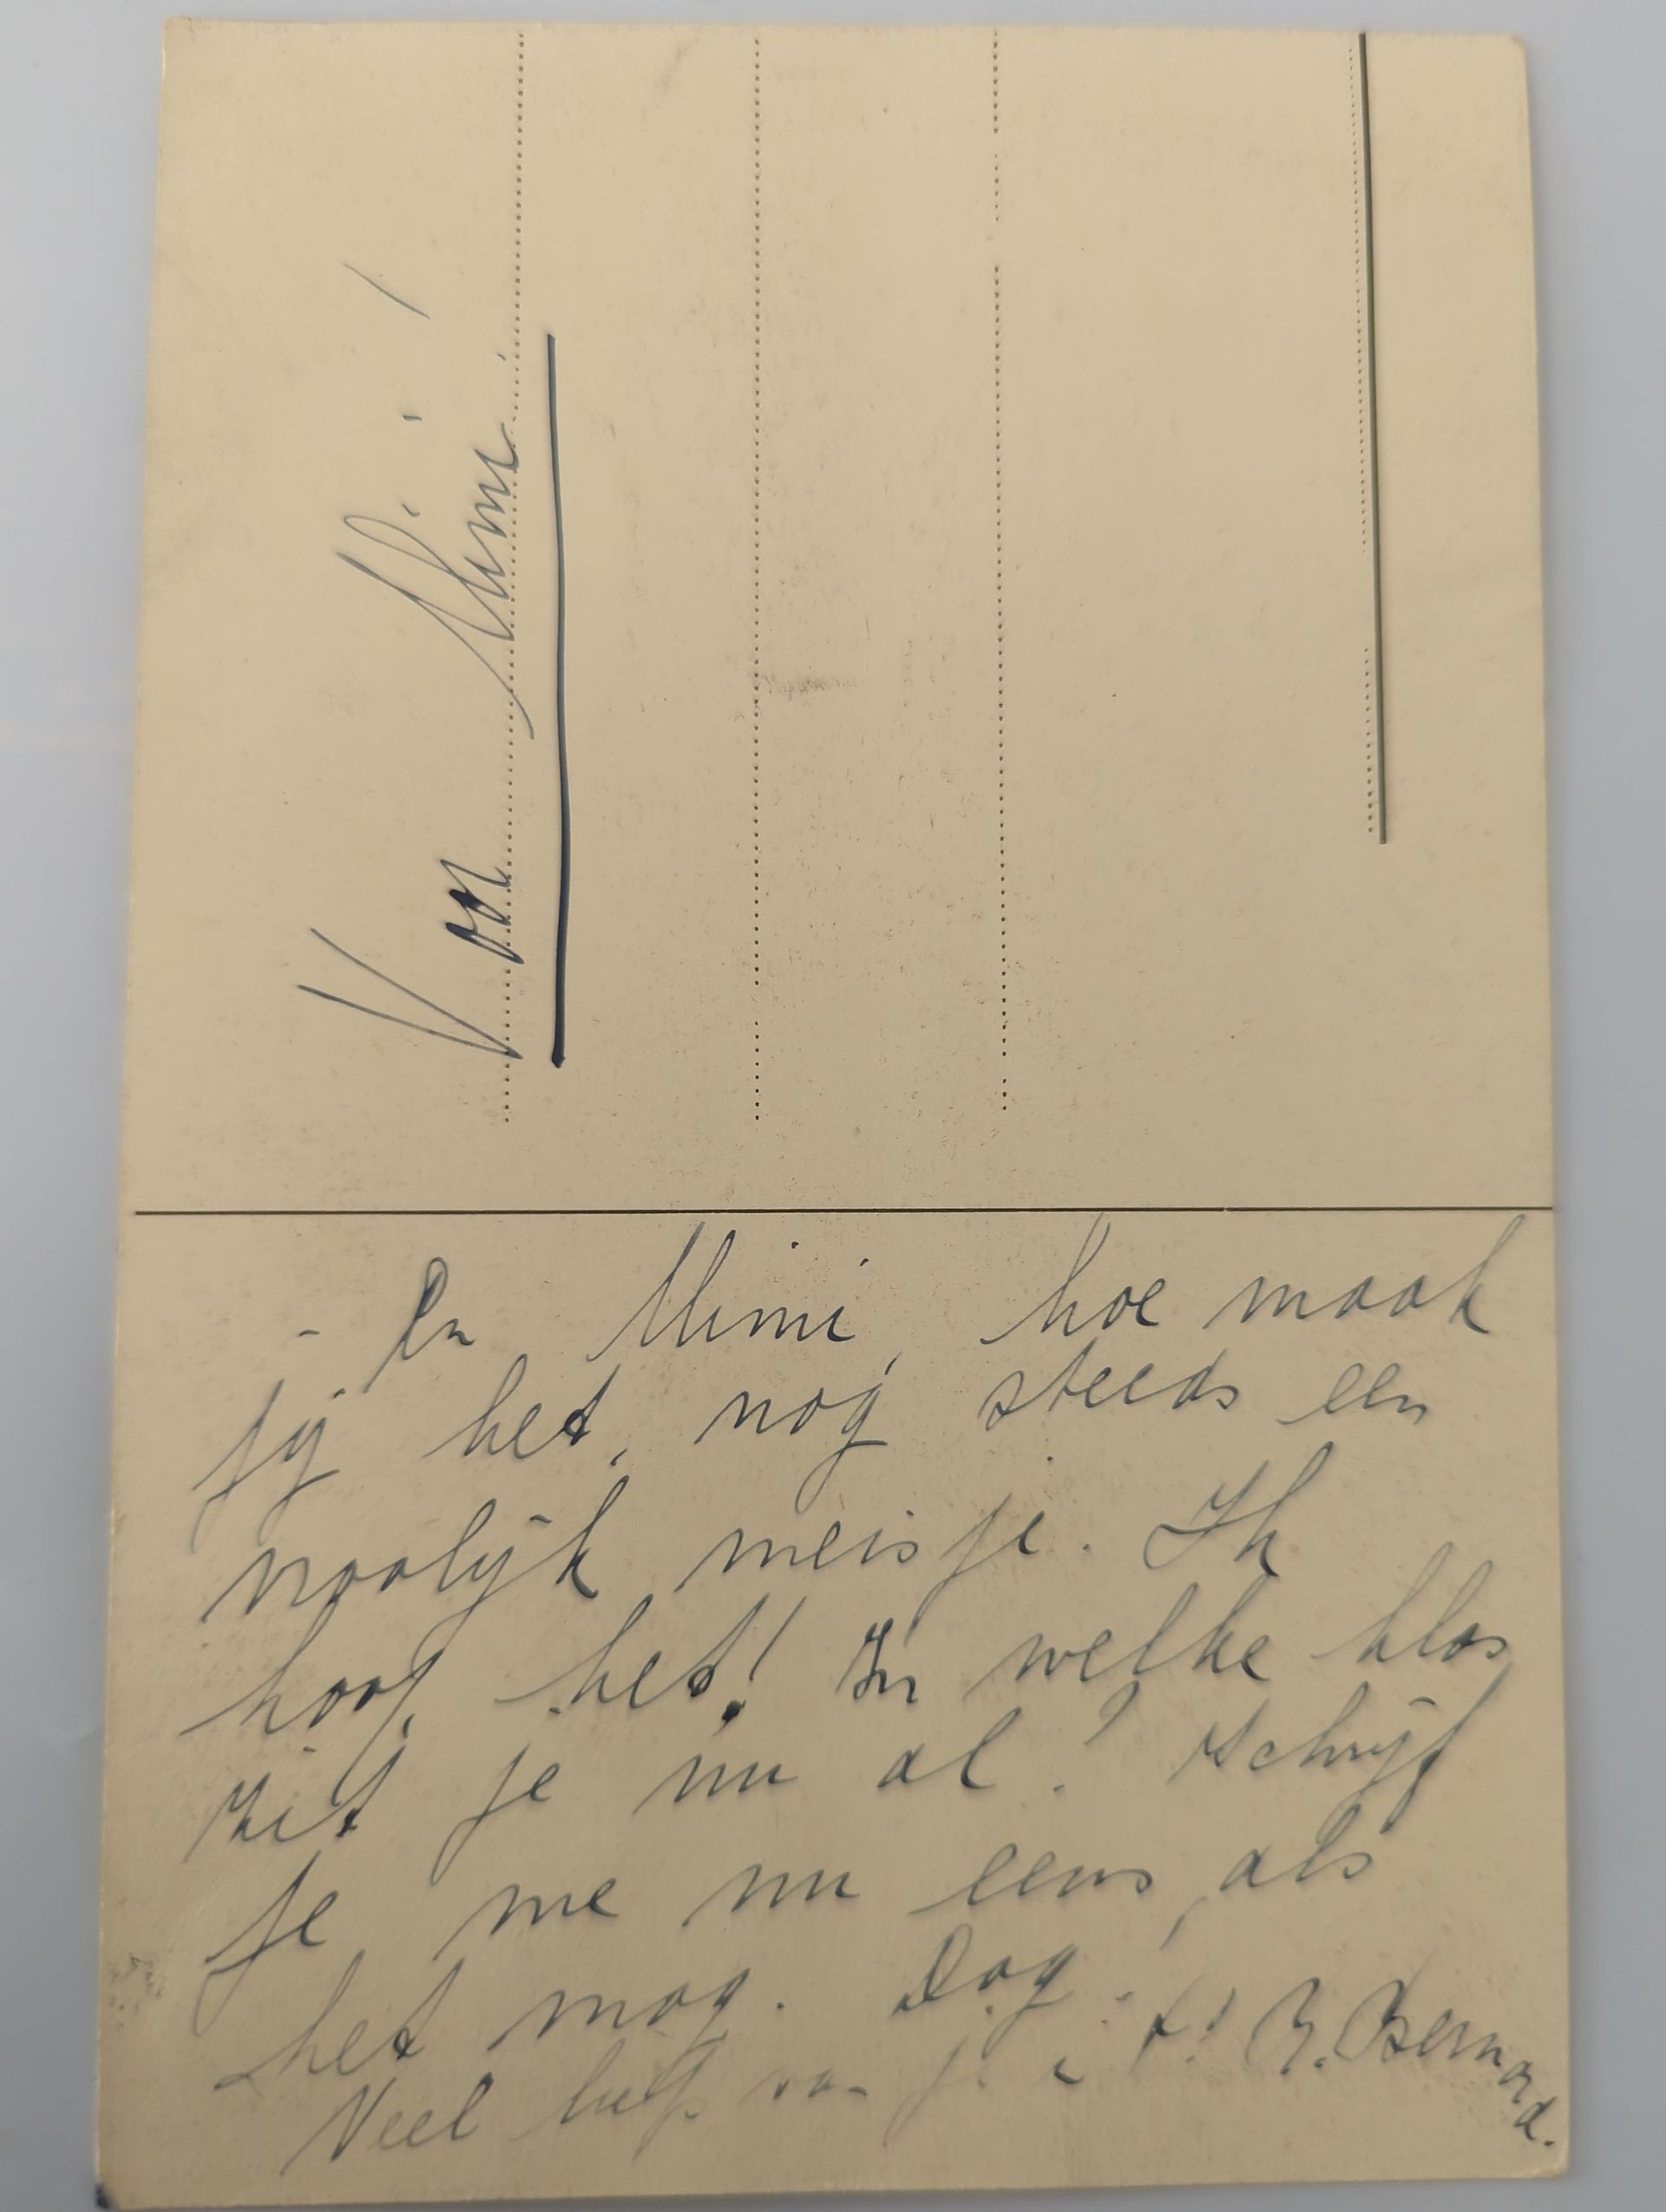 Voor Mimi!
- En Mimi, hoe maak
jij het, nog steeds een
vroolijk meisje. Ik
hoop het! In welke klas
zit je nu al? Schrijf
je me nu eens, als
het mag. Dag.
Veel liefs van je B. Bernard.